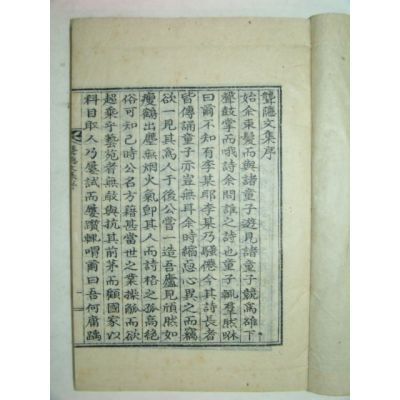 聾隱文集序
始余束髮而與諸童子遊見諸童子競高雄下
聲鼓掌而哦詩余問誰之詩也童子輒羣然咻
曰爾不知有李某耶李某乃騷僊今其詩長者
皆傳誦童子豈無耳余時縮恧心異之而竊
欲一見其爲人于後公嘗一造吾廬見頎然如
瘦鶴出塵無烟火氣卽其人而詩格之孤高絶
俗可知已時公名方藉甚當世之業操觚而欲
超乘乎藝苑者無敢與抗其前茅而顧國家以
科目取人乃屢試而屢躓輒喟爾曰吾何庸踽